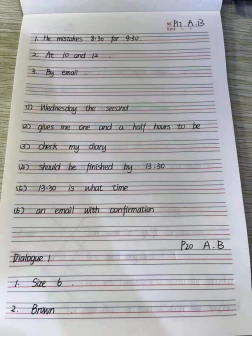 P17 A.B
1. He mistakes 8:30 for 9:30.
2. At 10 and 12.
3. By email.
(1) Wednesday the second
(2) gives me one and a half hours to be
(3) check my diary
(4) should be finished by 13:30
(5) 13:30 is what time
(6) an email with confirmation
P20 A.B
Dialogue 1
1. Size 6.
2. Brown